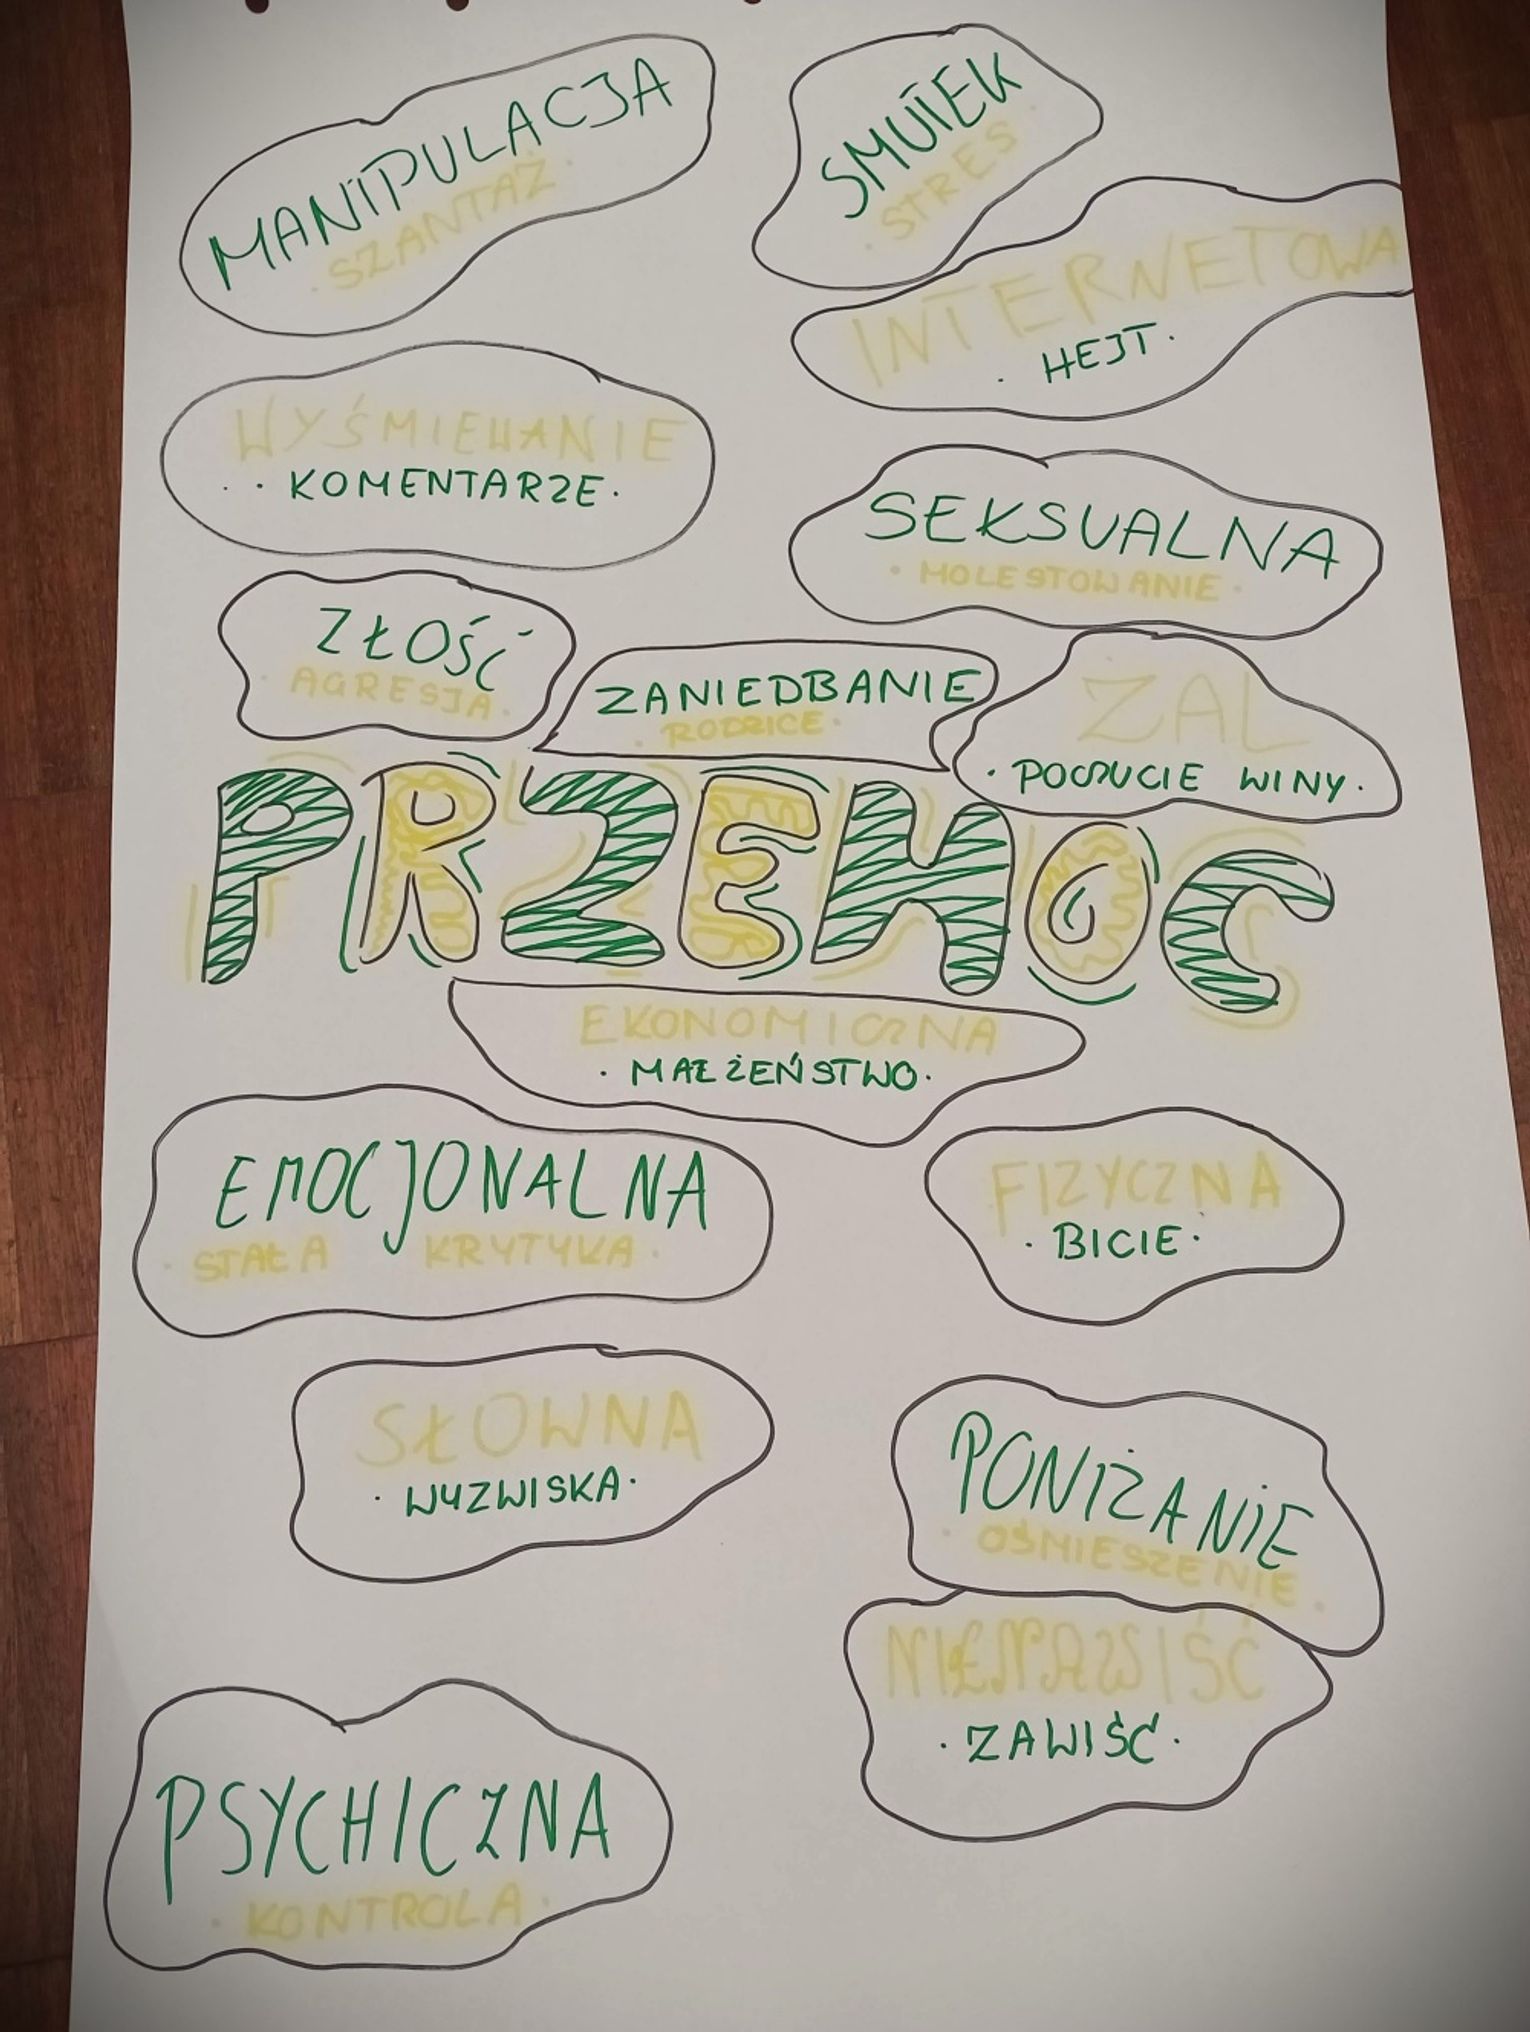 MANIPULACJA
· SZANTAŻ ·
SMUTEK
· STRES ·
INTERNETOWA
· HEJT ·
WYŚMIEWANIE
· KOMENTARZE ·
SEKSUALNA
· MOLESTOWANIE ·
ZŁOŚĆ
· AGRESJA ·
ZANIEDBANIE
· RODZICE ·
ŻAL
· POCZUCIE WINY ·
PRZEMOC
EKONOMICZNA
· MAŁŻEŃSTWO ·
EMOCJONALNA
· STAŁA KRYTYKA ·
FIZYCZNA
· BICIE ·
SŁOWNA
· WYZWISKA ·
PONIŻANIE
· OŚMIESZENIE ·
NIENAWIŚĆ
· ZAWIŚĆ ·
PSYCHICZNA
· KONTROLA ·